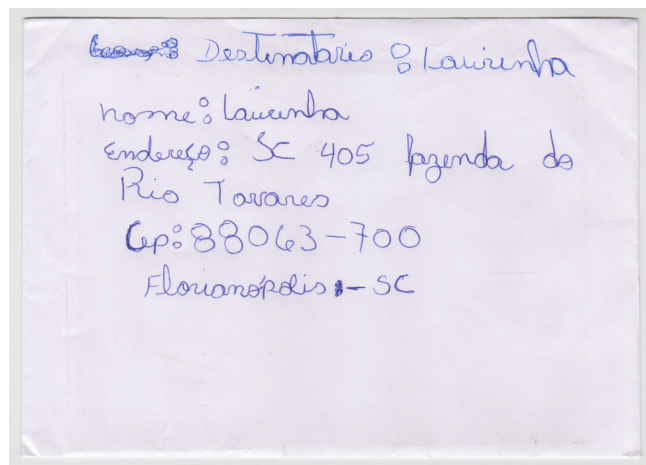 Destinatário : Laurinha
nome: Laurinha
Endereço: SC 405 fazenda do
Rio Tavares
Cep: 88063-700
Florianópolis - SC